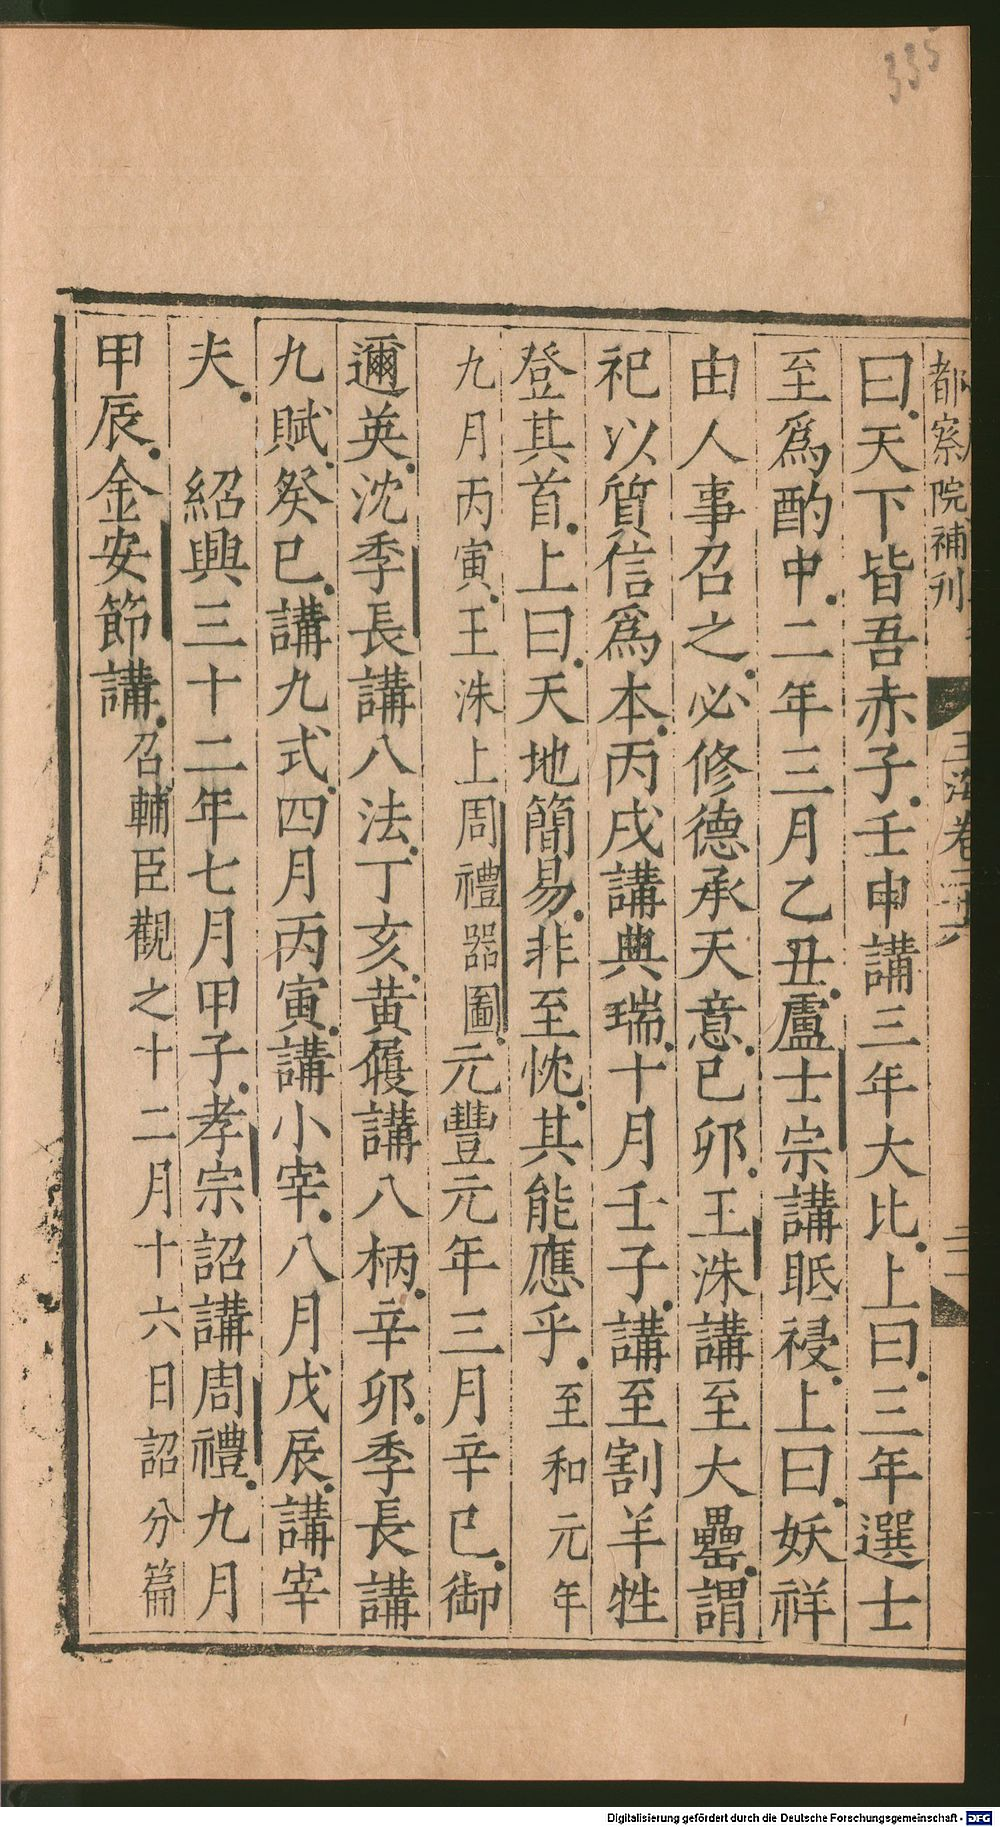 335
都察院補刊
玉海卷二十六
曰天下皆吾赤子壬申講三年大比上曰三年選士
至爲酌中二年三月乙丑盧士宗講眡祲上曰妖祥
由人事召之必修德承天意已卯王洙講至大罍謂
祀以質信爲本丙戌講典瑞十月壬子講至割羊牲
登其首上曰天地簡易非至忱其能應乎至和元年
九月丙寅王洙上周禮器圖元豐元年三月辛巳御
邇英沈季長講八法丁亥黄履講八柄辛卯季長講
九賦癸巳講九式四月丙寅講小宰八月戊辰講宰
夫　紹興三十二年七月甲子孝宗詔講周禮九月
甲辰金安節講召輔臣觀之十二月十六日詔分篇
Digitalisierung gefördert durch die Deutsche Forschungsgemeinschaft - DFG